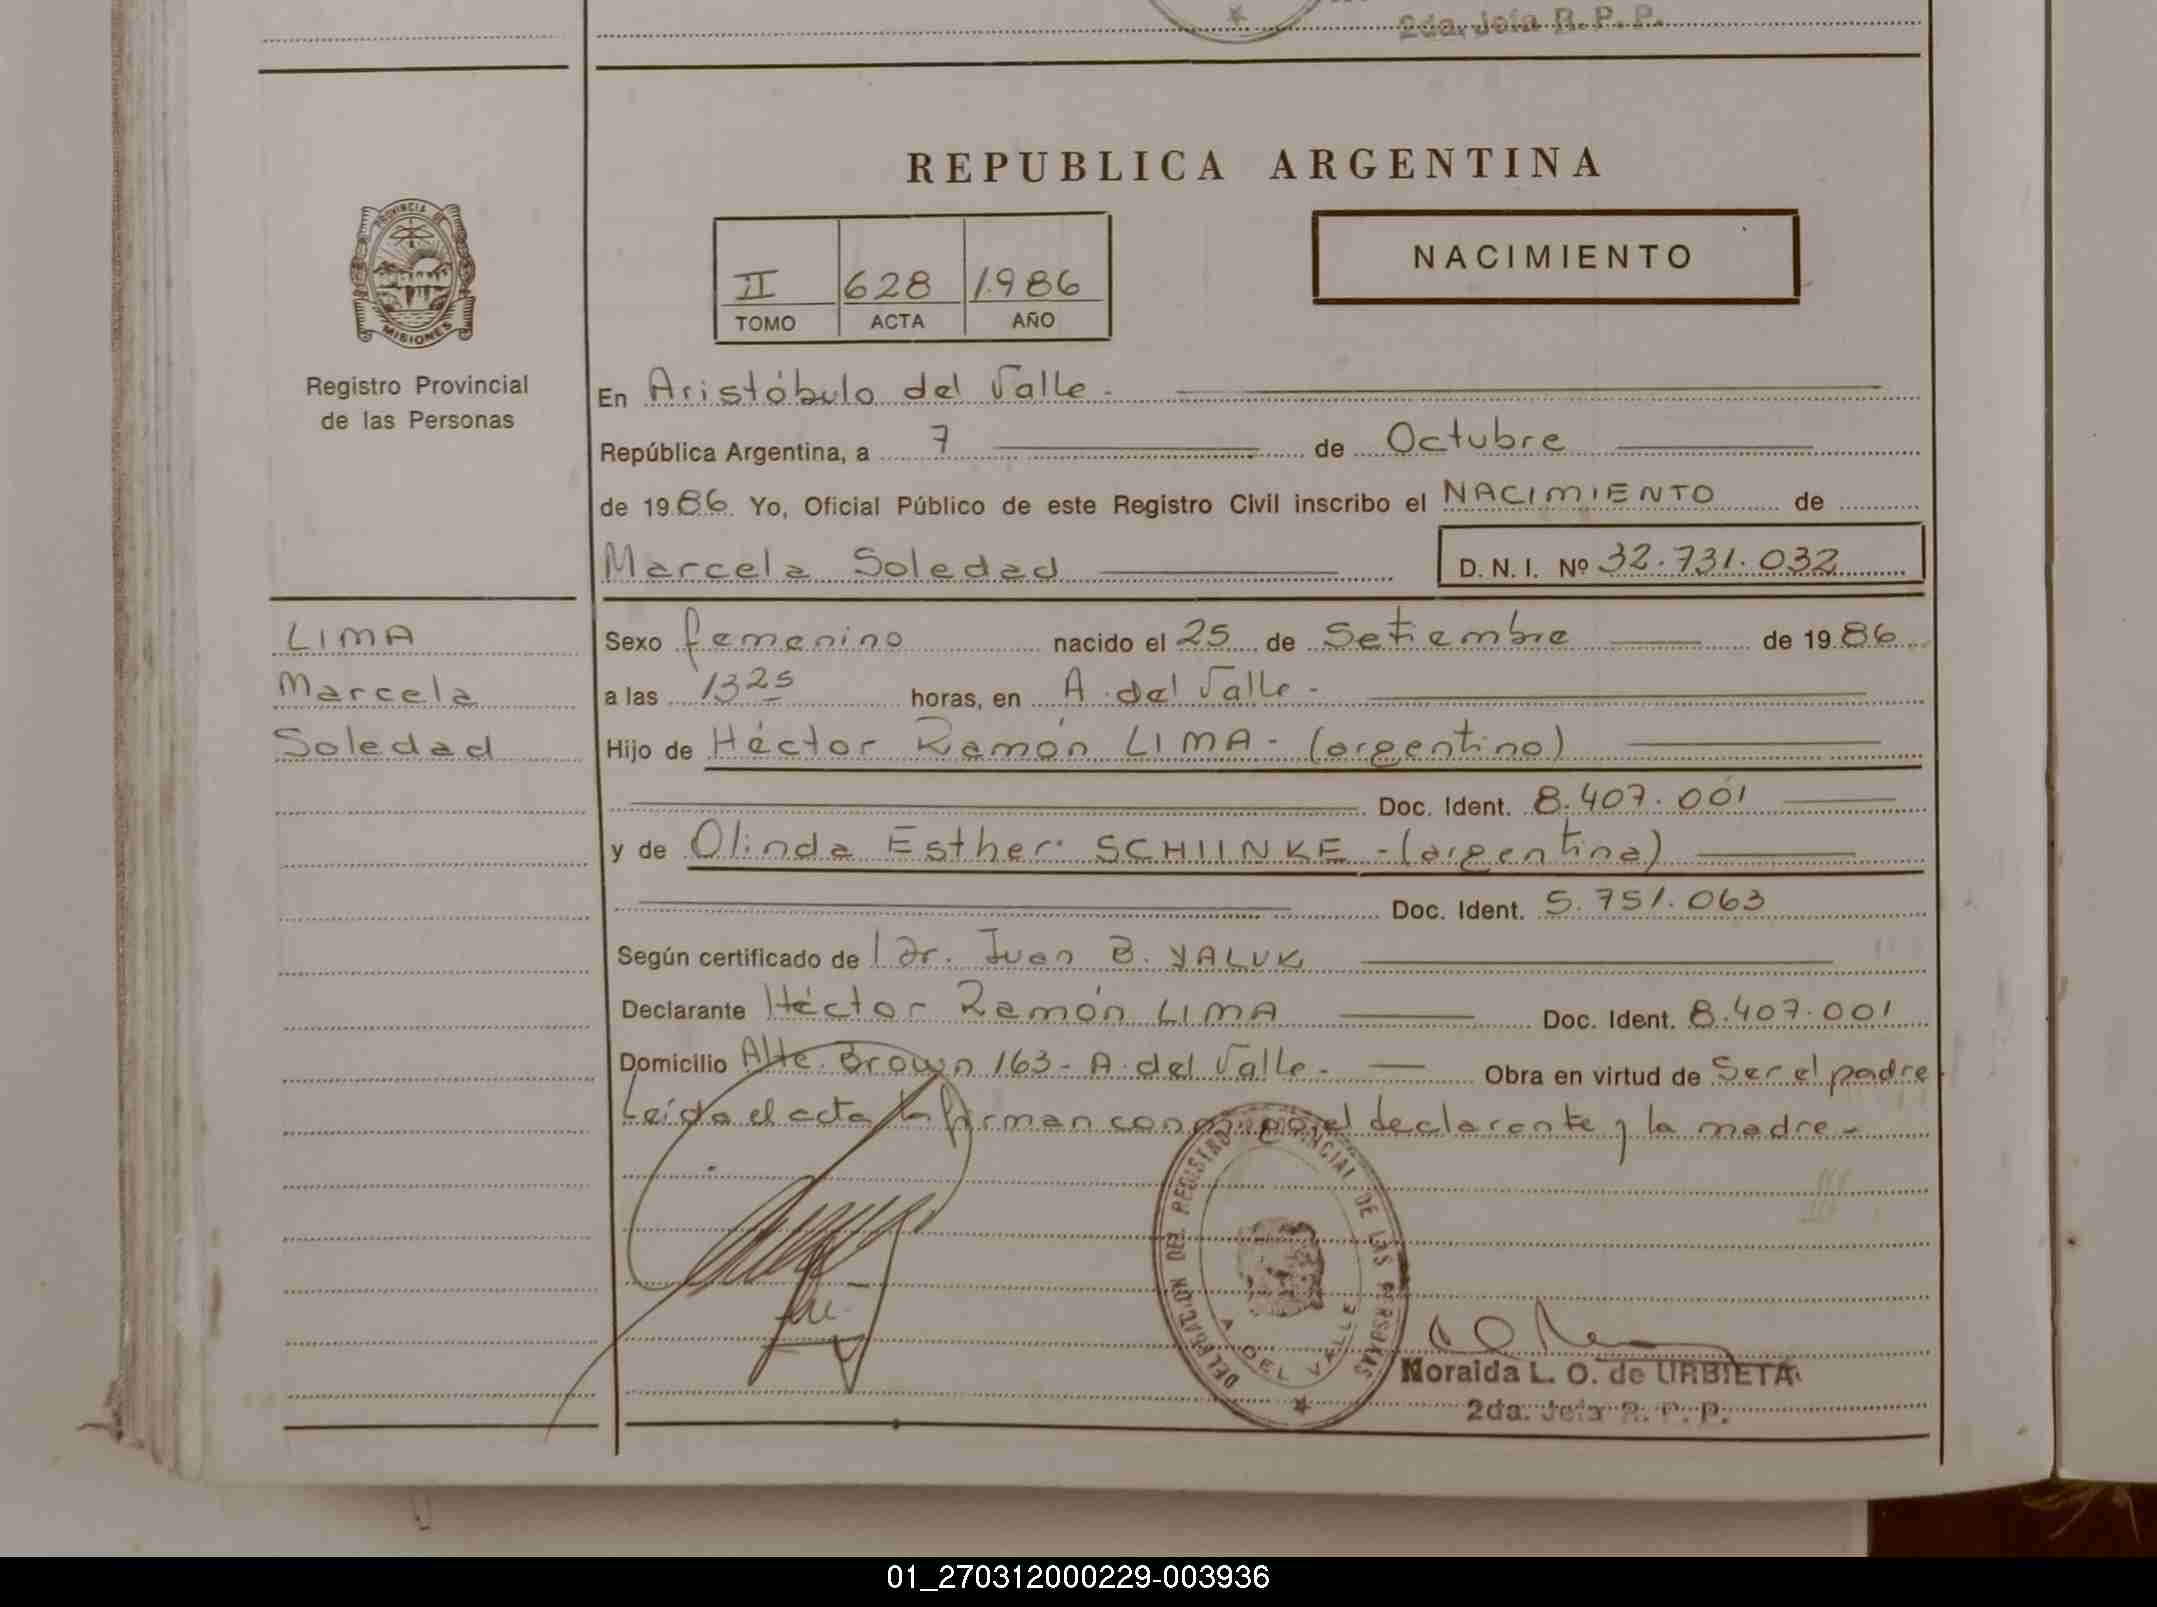 2da. Jefa R. P. P.
REPUBLICA ARGENTINA
NACIMIENTO
II 628 1986
TOMO ACTA AÑO
PROVINCIA DE
MISIONES
Registro Provincial
de las Personas
En Aristóbulo del Valle.
República Argentina, a 7 de Octubre
de 1986. Yo, Oficial Público de este Registro Civil inscribo el NACIMIENTO de
Marcela Soledad D. N. I. Nº 32.731.032
LIMA
Marcela
Soledad
Sexo femenino nacido el 25 de Setiembre de 1986
a las 13 25 horas, en A. del Valle -
Hijo de Héctor Ramón LIMA - (argentino)
Doc. Ident. 8.407.001
y de Olinda Esther SCHIINKE - (argentina)
Doc. Ident. 5.751.063
Según certificado de l Dr. Juan B. YALUK
Declarante Héctor Ramón LIMA Doc. Ident. 8.407.001
Domicilio Alte. Brown 163 - A. del Valle - Obra en virtud de Ser el padre
Leída el acta la firman conmigo el declarante y la madre -
DELEGACION DEL REGISTRO PROVINCIAL DE LAS PERSONAS
A. DEL VALLE
Noralda L. O. de URBIETA
2da. Jefa R. P. P.
01_270312000229-003936